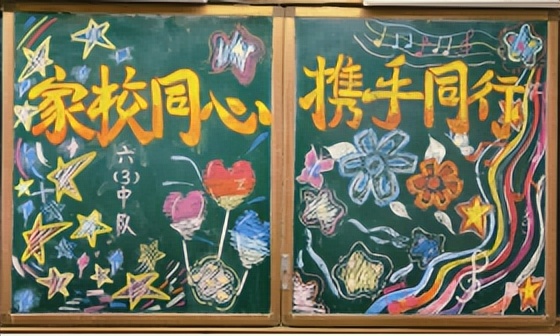 家校同心
携手同行
六(3)中队